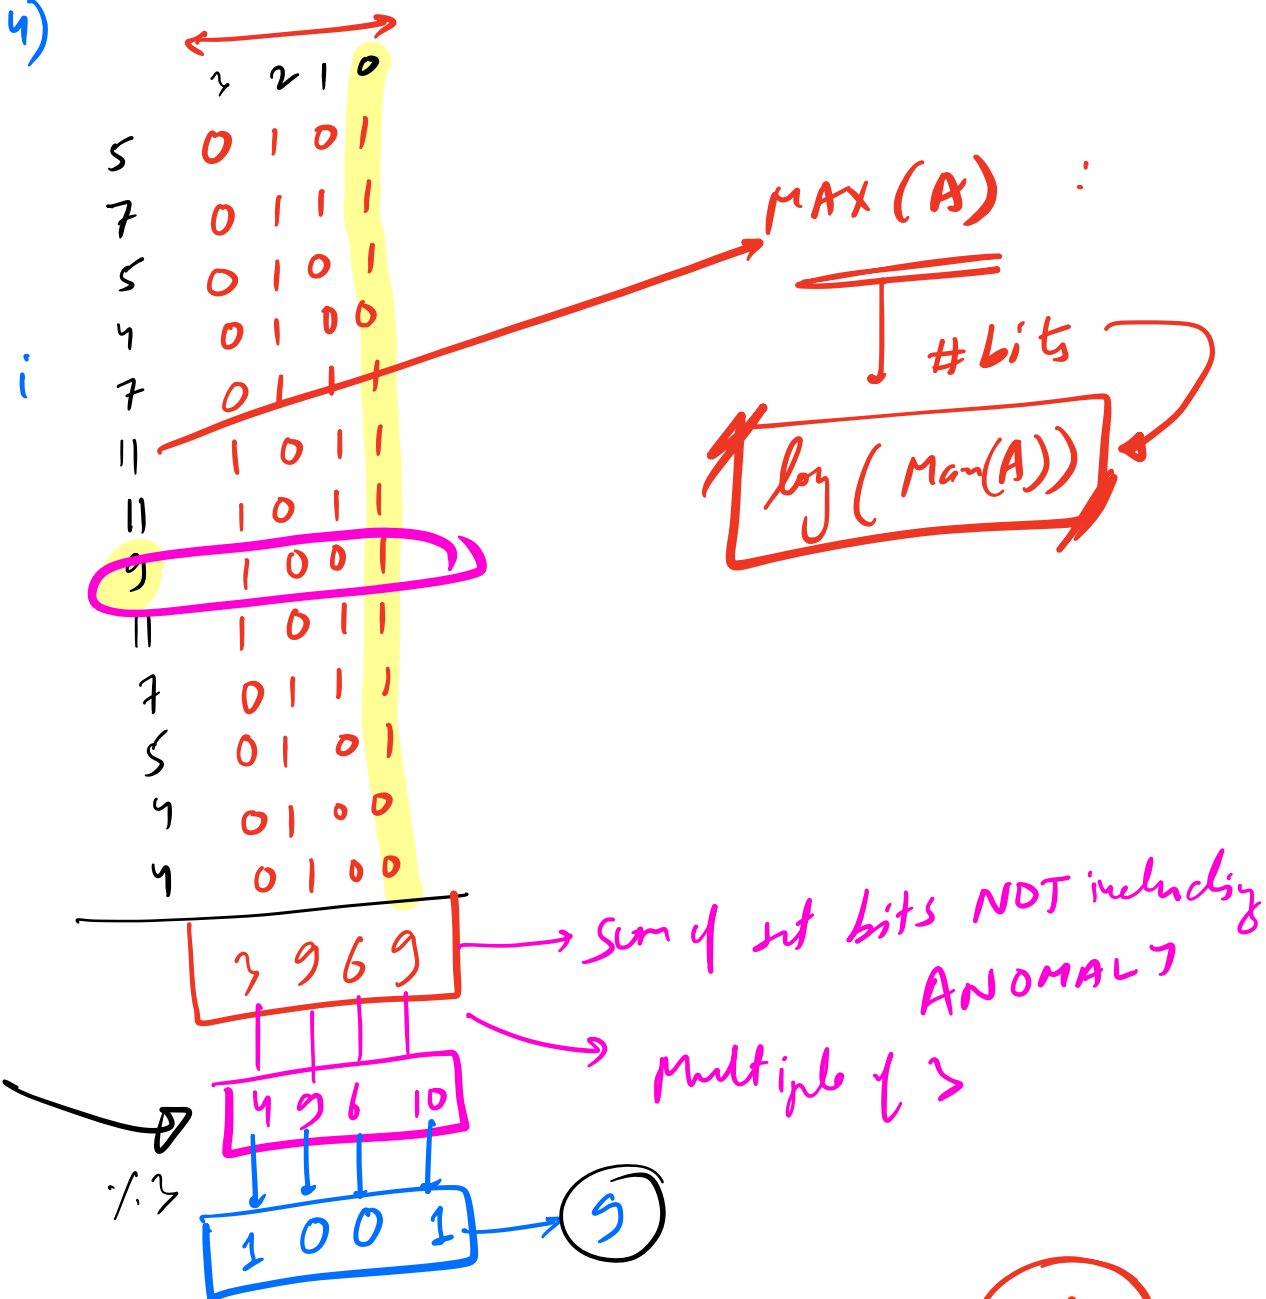 4)
3 2 1 0
5 0 1 0 1
7 0 1 1 1
5 0 1 0 1
4 0 1 0 0
i
7 0 1 1 1
11 1 0 1 1
11 1 0 1 1
9 1 0 0 1
11 1 0 1 1
7 0 1 1 1
5 0 1 0 1
4 0 1 0 0
4 0 1 0 0
3 9 6 9
4 9 6 10
% 3
1 0 0 1
9
MAX (A) :
# bits
log ( Max(A))
sum of set bits NOT including
ANOMALY
Multiple of 3